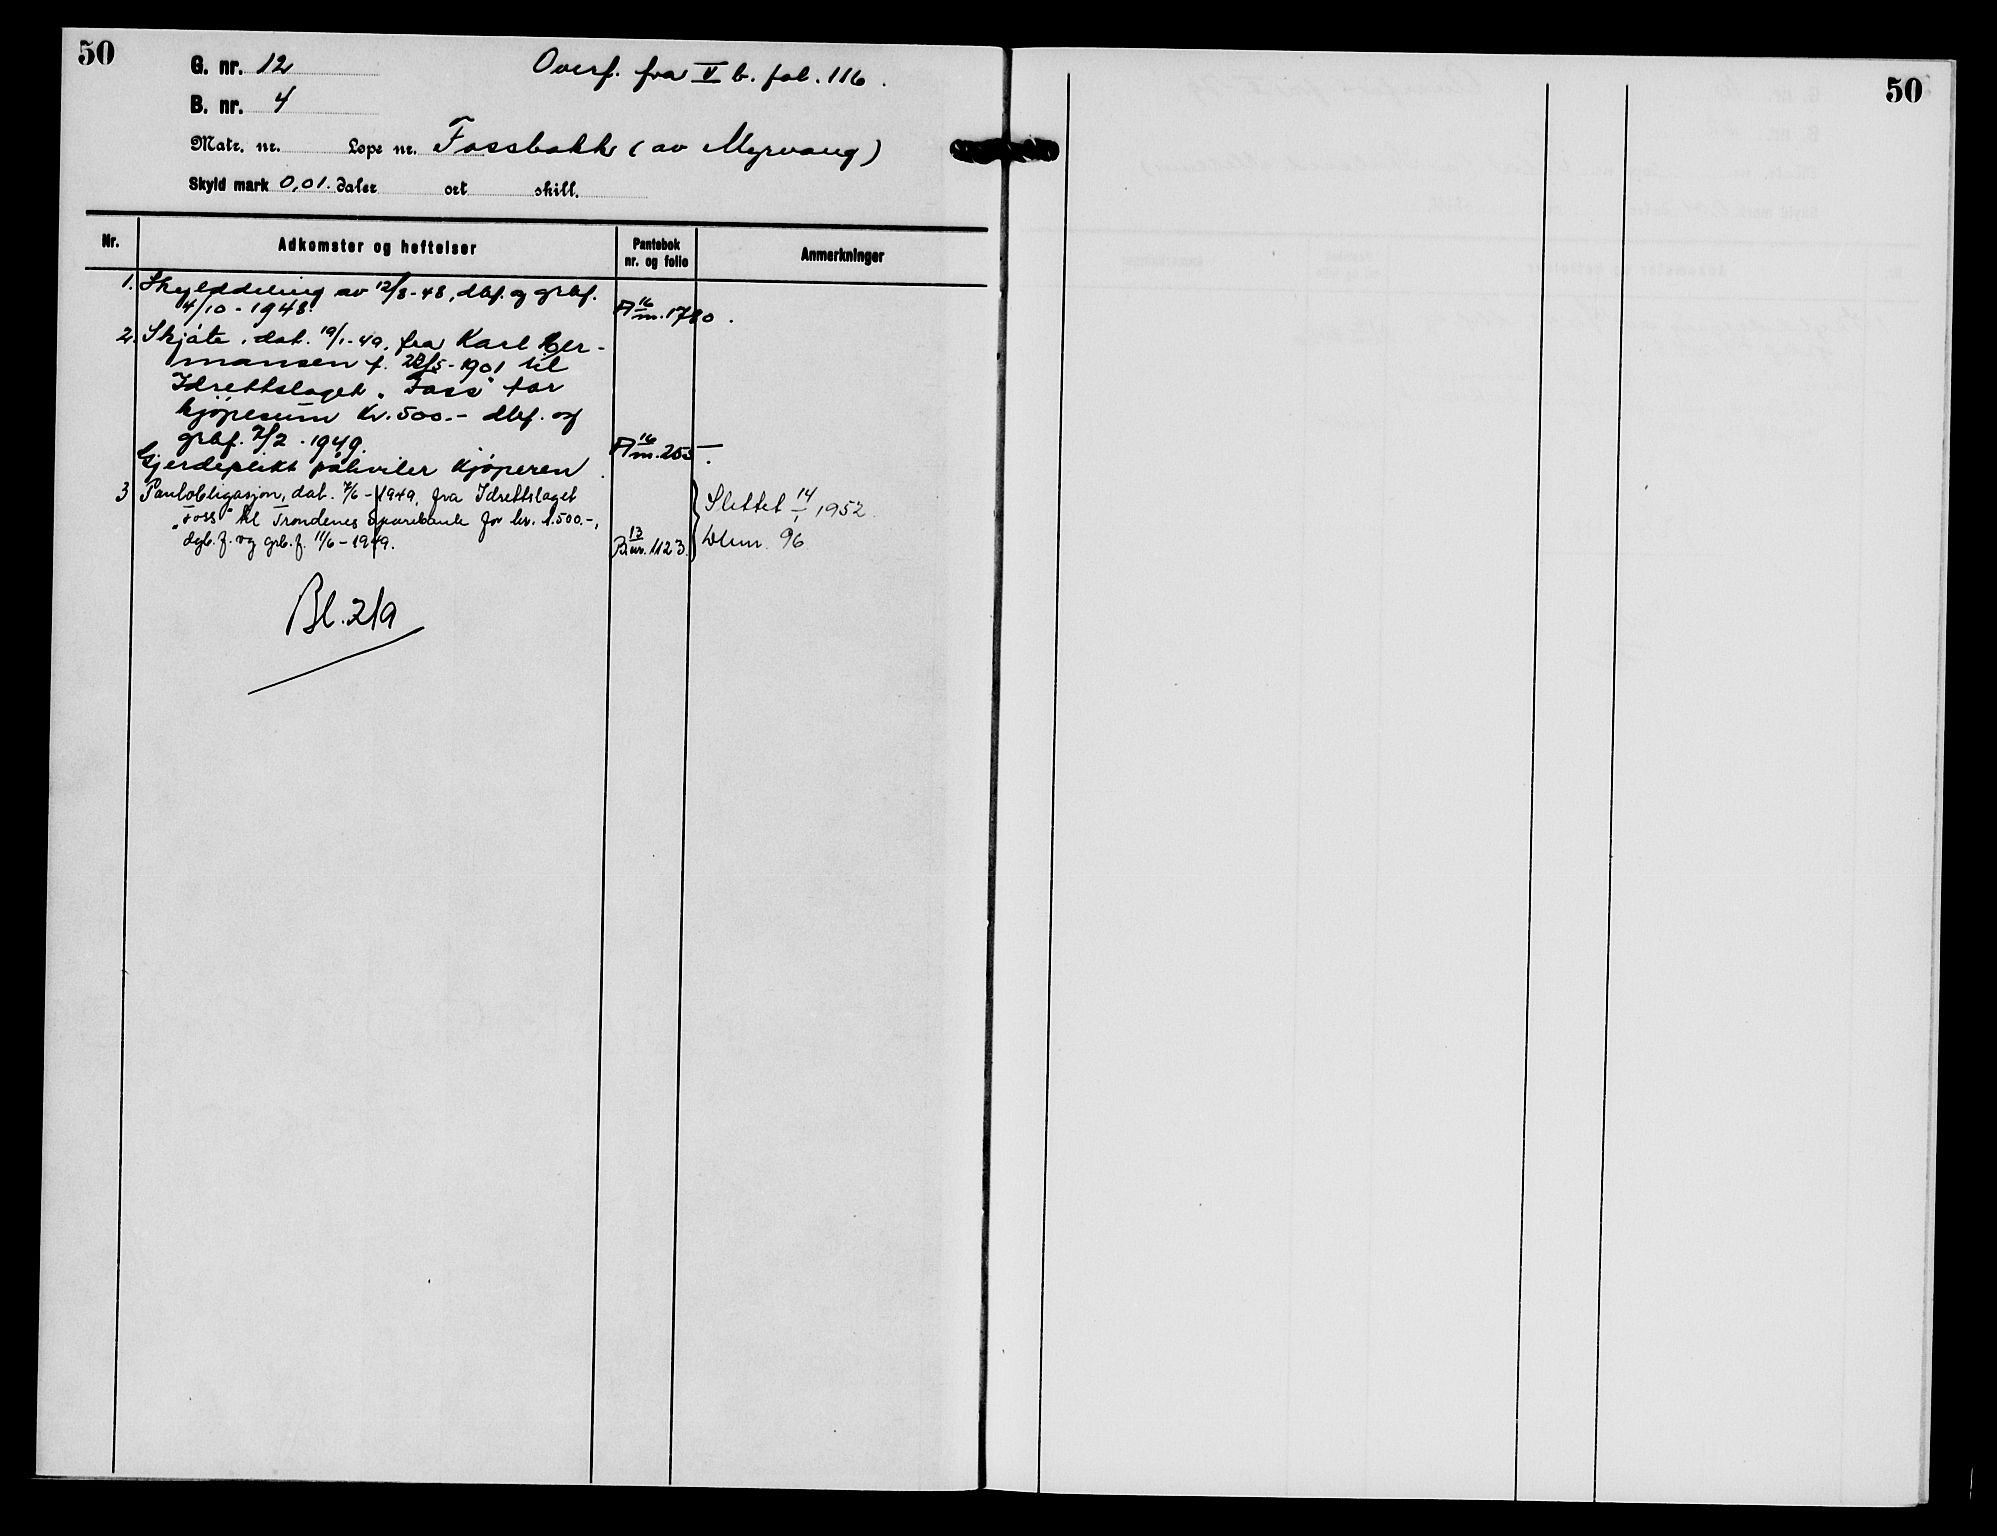 50
G. nr. 12 Overf. fra V b. fol. 116.
B. nr. 4
Matr. nr. Løpe nr. Fossbakk (av Myrvang)
Skyld mark 0,01. daler ort skill.
Nr. Adkomster og heftelser Pantebok nr. og folio Anmerkninger
1. Skylddeling av 12/8-48, dbf. og grbf.
4/10-1948. A 16 m. 1780.
2. Skjøte, dat. 19/1-49, fra Karl Her-
mansen f. 28/5-1901 til
Idrettslaget „Foss" for
kjøpesum kr. 500.- dbf. og
grbf. 7/2-1949. A 16 m. 255
Gjerdeplikt påhviler kjøperen.
3 Pantobligasjon, dat. 7/6-1949, fra Idrettslaget
„Foss" til Trondenes Sparebank for kr. 1.500.-,
dgb.f. og grb.f. 11/6-1949. B 13 nr. 1123.
Slettet 14/1 1952.
Dbnr. 96
Bl. 219
50